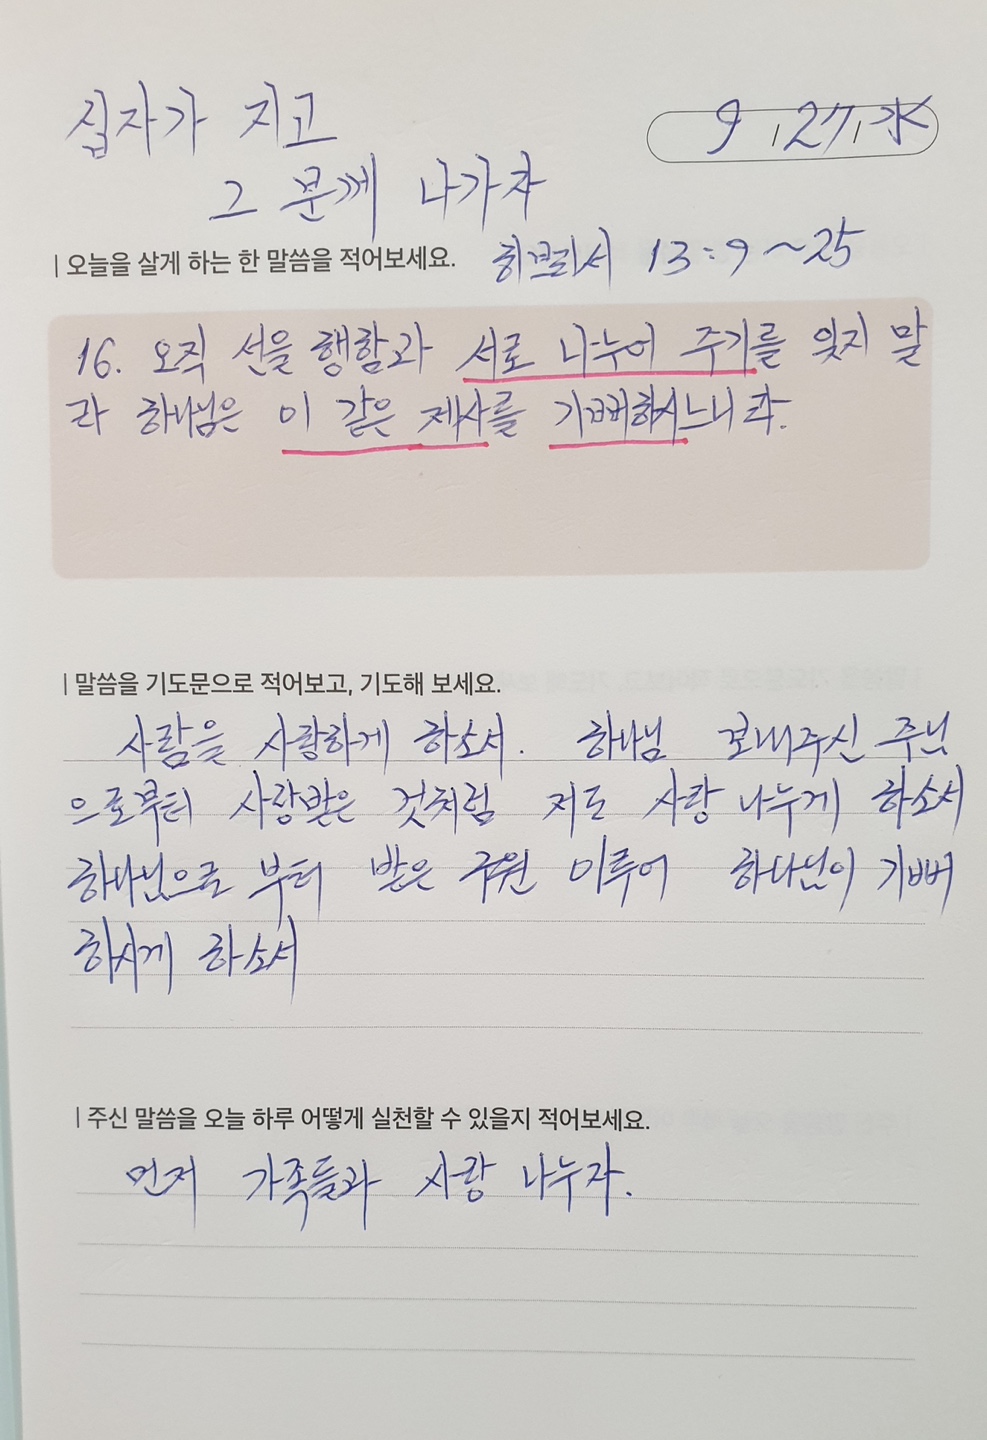 십자가 지고
9 / 27 / 水
그 문께 나가자
| 오늘을 살게 하는 한 말씀을 적어보세요.
히브리서 13:9~25
16. 오직 선을 행함과 서로 나누어 주기를 잊지 말
라 하나님은 이 같은 제사를 기뻐하시느니라.
| 말씀을 기도문으로 적어보고, 기도해 보세요.
사람을 사랑하게 하소서. 하나님 보내주신 주님
으로부터 사랑받은 것처럼 저도 사랑 나누게 하소서
하나님으로 부터 받은 구원 이루어 하나님이 기뻐
하시게 하소서
| 주신 말씀을 오늘 하루 어떻게 실천할 수 있을지 적어보세요.
먼저 가족들과 사랑 나누자.